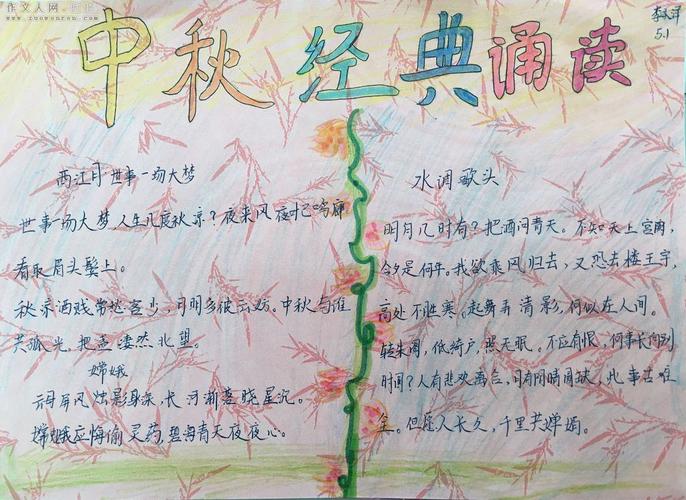 作文人网
中秋经典诵读
5.1
西江月 世事一场大梦
世事一场大梦,人生几度秋凉?夜来风夜鸣廊
看取眉头鬓上。
秋来酒贱常愁客少,月明多被云妨。中秋与谁
共孤光,把盏凄然北望。
嫦娥
云母屏风烛影深,长河渐落晓星沉。
嫦娥应悔偷灵药,碧海青天夜夜心。
水调歌头
明月几时有?把酒问青天。不知天上宫阙,
今夕是何年。我欲乘风归去,又恐去楼王宇,
高处不胜寒。起舞弄清影,何似在人间。
转朱阁,低绮户,照无眠。不应有恨,何事长向别
时间?人有悲欢离合,月有阴晴圆缺,此事古难
全。但愿人长久,千里共婵娟。